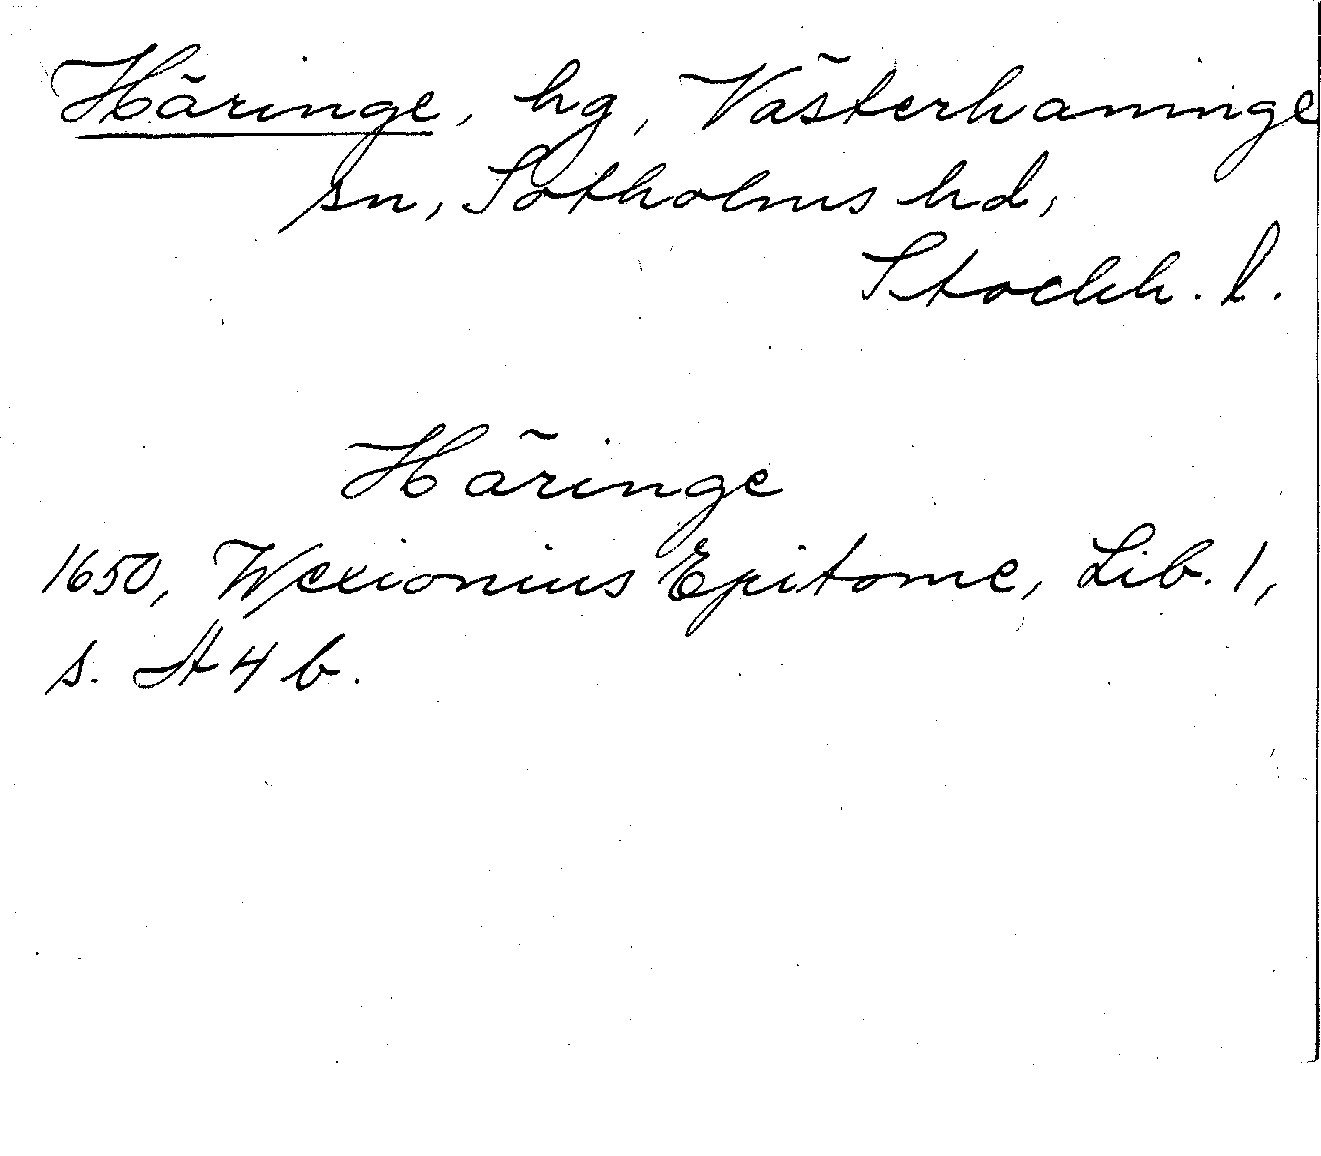 Häringe, hg, Västerhaninge
sn, Sotholms hd,
Stockh. l.
Häringe
1650, Wexionius Epitome, Lib. 1,
s. A 4 b.